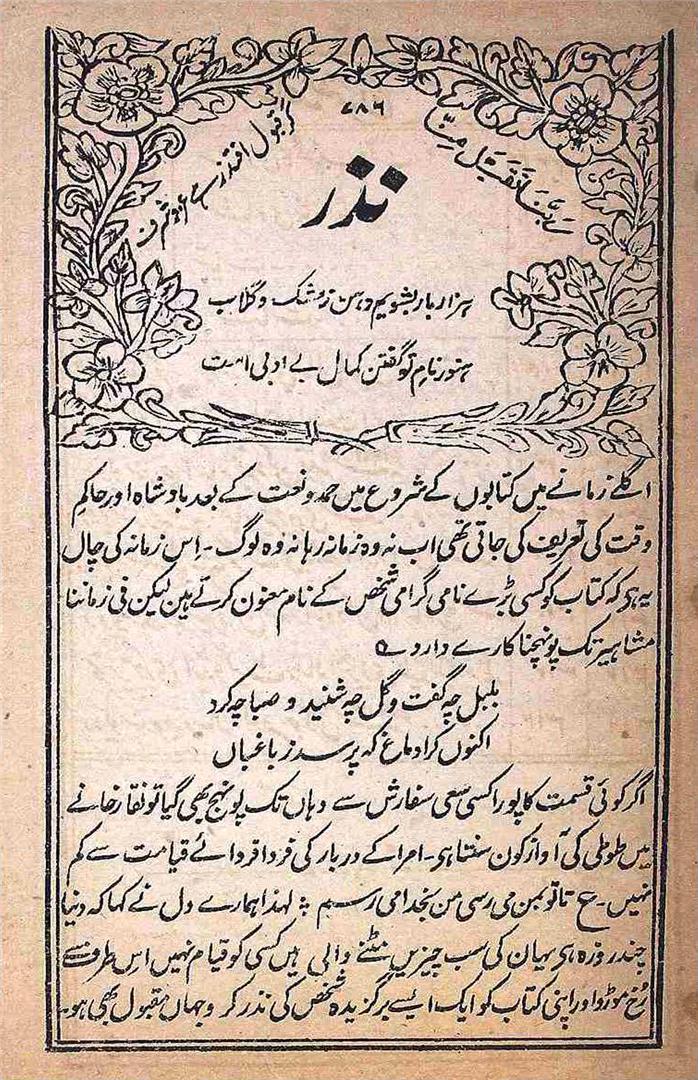 ۷۸۶
رَبَّنَا تَقَبَّلْ مِنَّا
گر قبول افتد زہے عز و شرف
نذر
ہزار بار بشویم دہن زمشک و گلاب
ہنوز نامِ تو گفتن کمال بے ادبی است
اگلے زمانے میں کتابوں کے شروع میں حمد و نعت کے بعد بادشاہ اور حاکمِ
وقت کی تعریف کی جاتی تھی اب نہ وہ زمانہ رہا نہ وہ لوگ ۔ اِس زمانہ کی چال
یہ ہی کہ کتاب کو کسی بڑے نامی گرامی شخص کے نام معنون کرتے ہین لیکن فی زماننا
مشاہیر تک پونہچنا کارے دارد ے
بلبل چہ گفت و گل چہ شنید و صبا چہ کرد
اکنوں کرا دماغ کہ پرسد زباغباں
اگر کوئی قسمت کا پورا کسی سعی سفارش سے وہاں تک پونہچ بھی گیا تو نقار خانے
میں طوطی کی آواز کون سنتا ہی ۔ امرا کے دربار کی فردا فردائے قیامت سے کم
نہیں ۔ ع تا تو بمن می رسی من بخدا می رسم ؛ لہذا ہمارے دل نے کہا کہ دنیا
چند روزہ ہی یہان کی سب چیزیں مٹنے والی ہیں کسی کو قیام نہیں اس طرف سے
رُخ موڑو اور اپنی کتاب کو ایک ایسے برگزیدہ شخص کی نذر کرو جہاں مقبول بھی ہو ۔